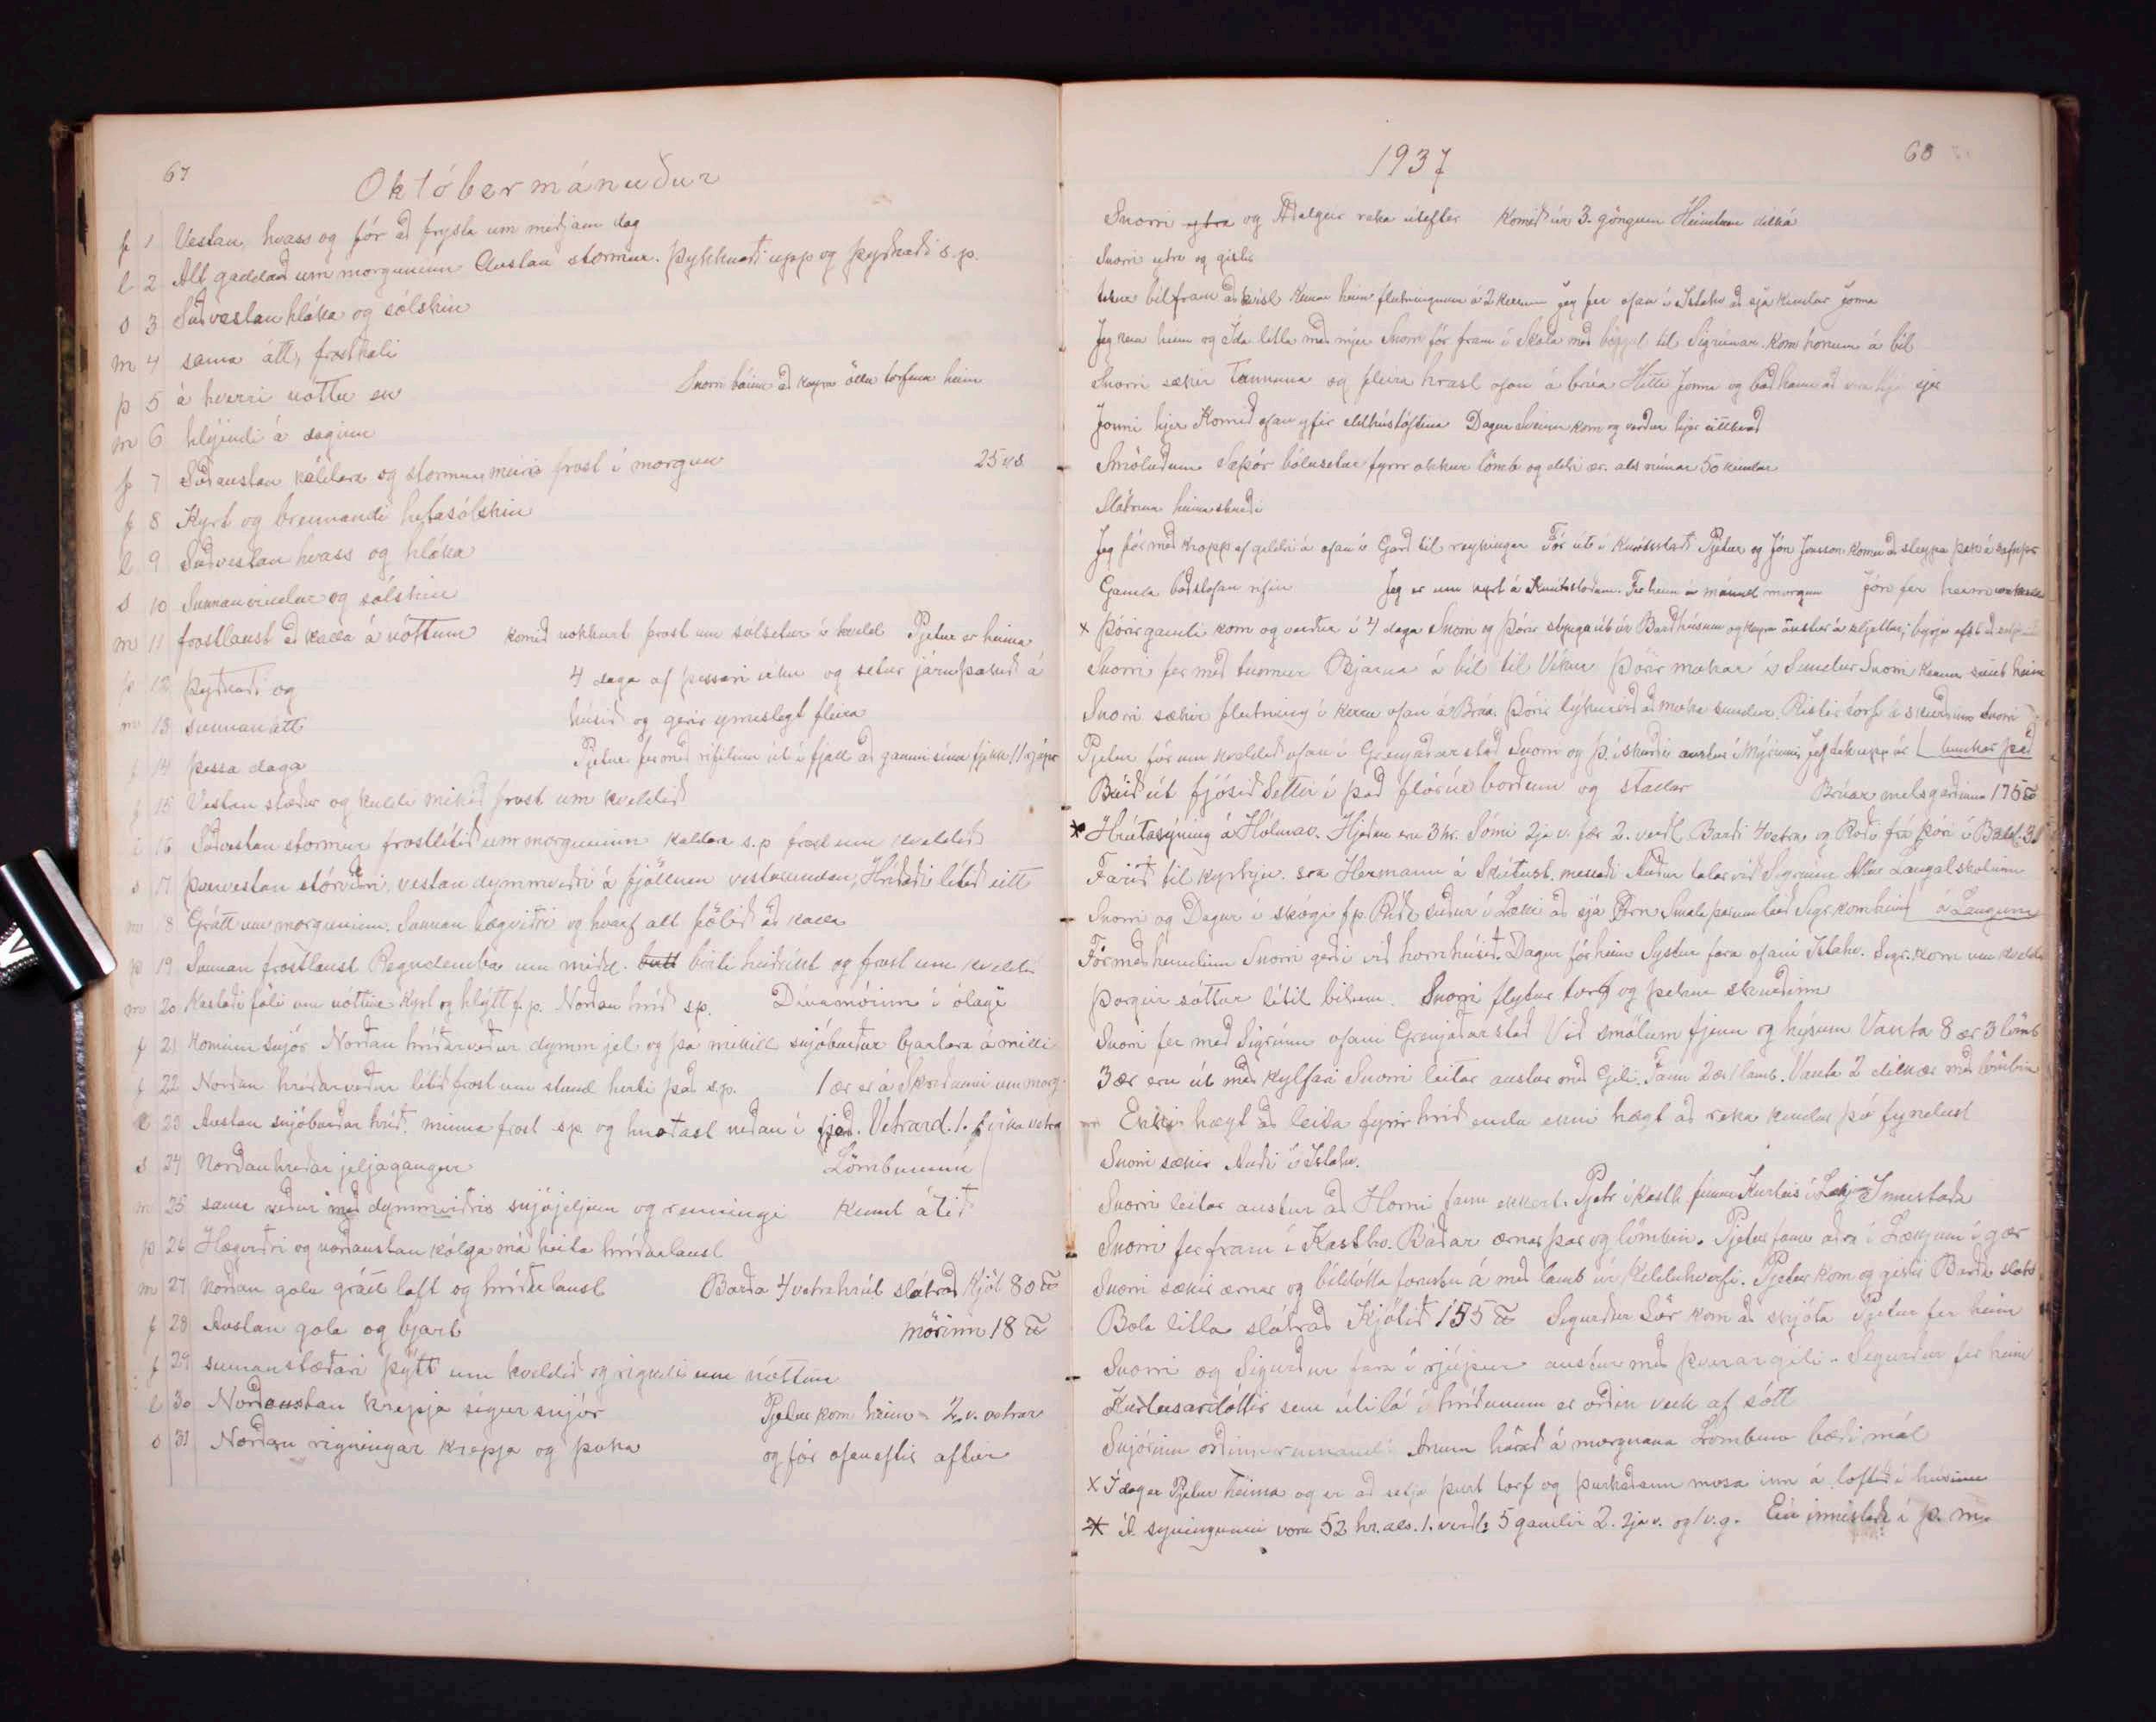 67
Októbermánuður
f 1 Vestan, hvass og fór að frysta um miðjann dag
l 2 Alt gaddað um morguninn Austan stormur. Þykknaði upp og þyðnaði s.p.
s 3 Suðvestan hláka og sólskin
m 4 sama átt, frostkali
þ 5 á hverri nóttu en Snorri búinn að keyra öllu torfinu heim
m 6 hlýindi á daginn
f 7 Suðaustan kaldara og stormur meira frost í morgun 25
f 8 Kyrt og brennandi hitasólskin
l 9 Suðvestan hvass og hláka
s 10 Sunnanvindur og sólskin
m 11 frostlaust að kalla á nóttum komið nokkurt frost um sólsetur í kveld Pjetur er heima
þ 12 Þyðnaði og 4 daga af þessari viku og setur járnþakið á
m 13 sunnanátt húsið og gerir ymislegt fleira
f 14 þessa daga Pjetur fer með rifilinn út í fjall að gamni sínu fjekk 11 rjúpr
f 15 Vestan stæður og kuldi mikið frost um kveldið
l 16 Suðvestan stormur frostlítið um morguninn kaldara s.p frost um kveldið
s 17 Þvervestan stórviðri, vestan dymmviðri á fjöllum vesturundan, Hríðaði lítið eitt
m 18 Grátt um morguninn. Sunnan hægviðri og hvarf alt fölið að kalla
þ 19 Sunnan frostlaust Regndemba um midd. birti heiðríkt og frost um kveldið
m 20 Kastaði föli um nóttina Kyrt og hlýtt f.p. Norðan hríð s.p. Dívamórinn í ólagi
f 21 Kominn snjór Norðan hríðarveður dymm jel og þá mikill snjóburður bjartara á milli
f 22 Norðan hríðarveður lítið frost um stund herti það s.p. 1 ær er á Skörðunni um morg.
l 23 Austan snjóburðar hríð. minna frost s.p. og hnotast neðan í fjöð. Vetrard. 1. vika vetra
s 24 Norðanhríðar jeljagangur Lömbunum
m 25 sama veður með dymmviðris snjójeljum og renningi Kennt átið
þ 26 Hægviðri og norðaustan kólga má heita hríðarlaust
m 27 Norðan gola gráit loft og hríðarlaust Barða 4 vetra hrút slátrað Kjöt 80 ℔
f 28 Austan gola og bjart mörinn 18 ℔
f 29 sunnanstæðari þytt um kveldið og rigndi um nóttina
l 30 Norðaustan krepja sígur snjór Pjetur kom heim 2. v. vetrar
s 31 Norðan rigningar krepja og þoka og fór ofaneftir aftur
1937
68
Snorri ytra og Aðalgeir reka úteftir Komið úr 3. göngum Heimtum dilká
Snorri ytra og gistir
tekur bílfram að kvísl Kemur heim flutningnum á 2 kerrum Jeg fer ofan í Ístahv að sjá kindur Jonna
Jeg kem heim og Ída litla með mjer Snorri fór fram í Skála með böggul til Sigrúnar. Kom honum á bíl
Snorri sækir Tunnuna og fleira hrasl ofan á brúa Hitti Jonna og bað hann að vera hjá sjer
Jonni hjer Komið ofan yfir eldhústóftina Dagur Sveinn kom og verður hjer eitthvað
Smöluðum Sæþór bólusetur fyrir okkur lömb og eldri ær. als rúmar 50 kindur
Slátrum heima
Jeg fór með kropp af geldri á ofan í Garð til reykingar Fór út í Knútsstaði Pjetur og Jón Jónsson komu að steypa
Gamla baðstofan rifin Jeg er um kyrt á Knútstöðum. Fer heim á mánud morgun Jón fer heim
× Þórir gamli kom og verður í 4 daga Snorri og Þórir stynga út úr Barðhúsum og keyra austur á
Snorri fer með tunnur Bjarna á bíl til Víkur Þórir mokar í Sundur Snorri kemur seint heim
Snorri sækir flutning í kerru ofan á Brúa. Þórir lýkur við að moka sundur. Ristir torf á skurðinn Snorri
Pjetur fór um kveldið ofan í Grenjaðarstað Snorri og Þ. í skurði austur í Mýrinni, Jeg tek upp úr hunkar það
Búið út fjósið settir í það flórúr borðum og stallar Brúar melsgarðinum 175 ℔
* Hrútasýning á Hólmav. Hjeðan eru 3 hr. Sómi 2ja v. fær 2. verðl. Barði 4 vetra og Roði frá Þóri í Baldh. 3.
Farið til kyrkju. sra Hermann á Skútust. messaði Auður talar við Sigrúnu Laugalskolinn
Snorri og Dagur í skógi f.p. Ríð suður í Læki að sjá Örn Smala þaðan leið Sigr. kom heim á Laugum
Fór með hundinn Snorri gerði við hornhúsið. Dagur fór heim Systur fara ofaní Ístahv. Sigr. kom um kveldið
Þorgeir sóttur lítil bílum. Snorri flytur torf og þekur skurðinn
Snorri fer með Sigrúnu ofaní Grenjaðarstað Við smölum fjenu og hýsum Vanta 8 ær 3 lömb
3 ær eru út með kylfari Snorri leitar austur með Gili. Fann 2 ær 1 lamb. Vanta 2 dilkær með lömbin
Ekki hægt að leita fyrir hríð enda ekki hægt að reka kindur þó fyndust
Snorri sækir Auði í Ístahv.
Snorri leitar austur að Horni fann ekkert. Pjetr í Kasth. finnur Kurteis í Læk Innistaða
Snorri fer fram í Kasthv. Báðar ærnar þar og lömbin. Pjetur fann aðra í Lækjum í gær
Snorri sækir ærnar og bíldótta forustu á með lamb úr Kelduhverfi. Pjetur kom og gistir Barða slátr
Bola litla slátrað Kjötið 155 ℔ Sigurður Lår kom að skjóta Pjetur fer heim
Snorri og Sigurður fara í rjúpur austur með Þverargili. Sigurður fer heim
Kurteisardóttir sem úti lá í hríðunum er orðin veik af sótt
Snjórinn orðinn rennandi Ánum hárað á morgnana Lombum bæði mál
× Í dag er Pjetur heima og er að setja þurt torf og þurkaðann mosa inn á loftið í húsinu
* Á syningunni voru 52 hr. als. 1. verðl. 5 gamlir 2. 2ja v. og 1 v.g. Ein innistaða í þ. m.